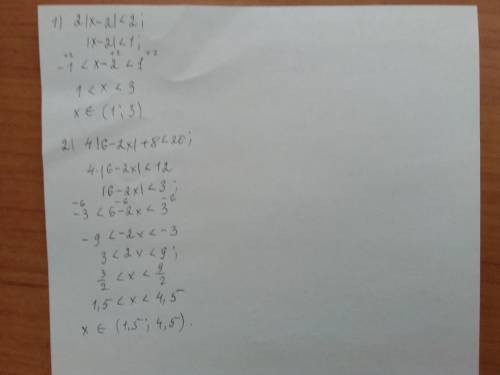 1) 2|x-2|<2;
|x-2|<1;
+2 +2 +2
-1<x-2<1
1<x<3
x∈(1;3)
2) 4|6-2x|+8<20;
4·|6-2x|<12
|6-2x|<3;
-6 -6 -6
-3<6-2x<3
-9<-2x<-3
3<2x<9;
3/2<x<9/2
1,5<x<4,5
x∈(1,5; 4,5).